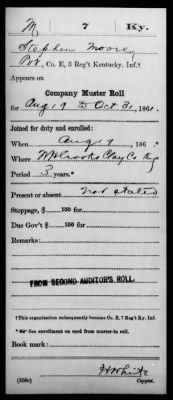 M 7 Ky.
Stephen Moore
Pvt, Co. E, 3 Reg't Kentucky, Inf.†
Appears on
Company Muster Roll
for Aug 19 to Oct 31, 1861.
Joined for duty and enrolled:
When Aug 19, 186 .*
Where Clay Co Ky
Period 3 years.*
Present or absent not stated
Stoppage, $ 100 for
Due Gov't $ 100 for
Remarks:
FROM SECOND AUDITOR'S ROLL.
†This organization subsequently became Co. E, 7 Reg't Ky. Inf.
* See enrollment on card from muster-in roll.
Book mark:
H White
(858c) Copyist.